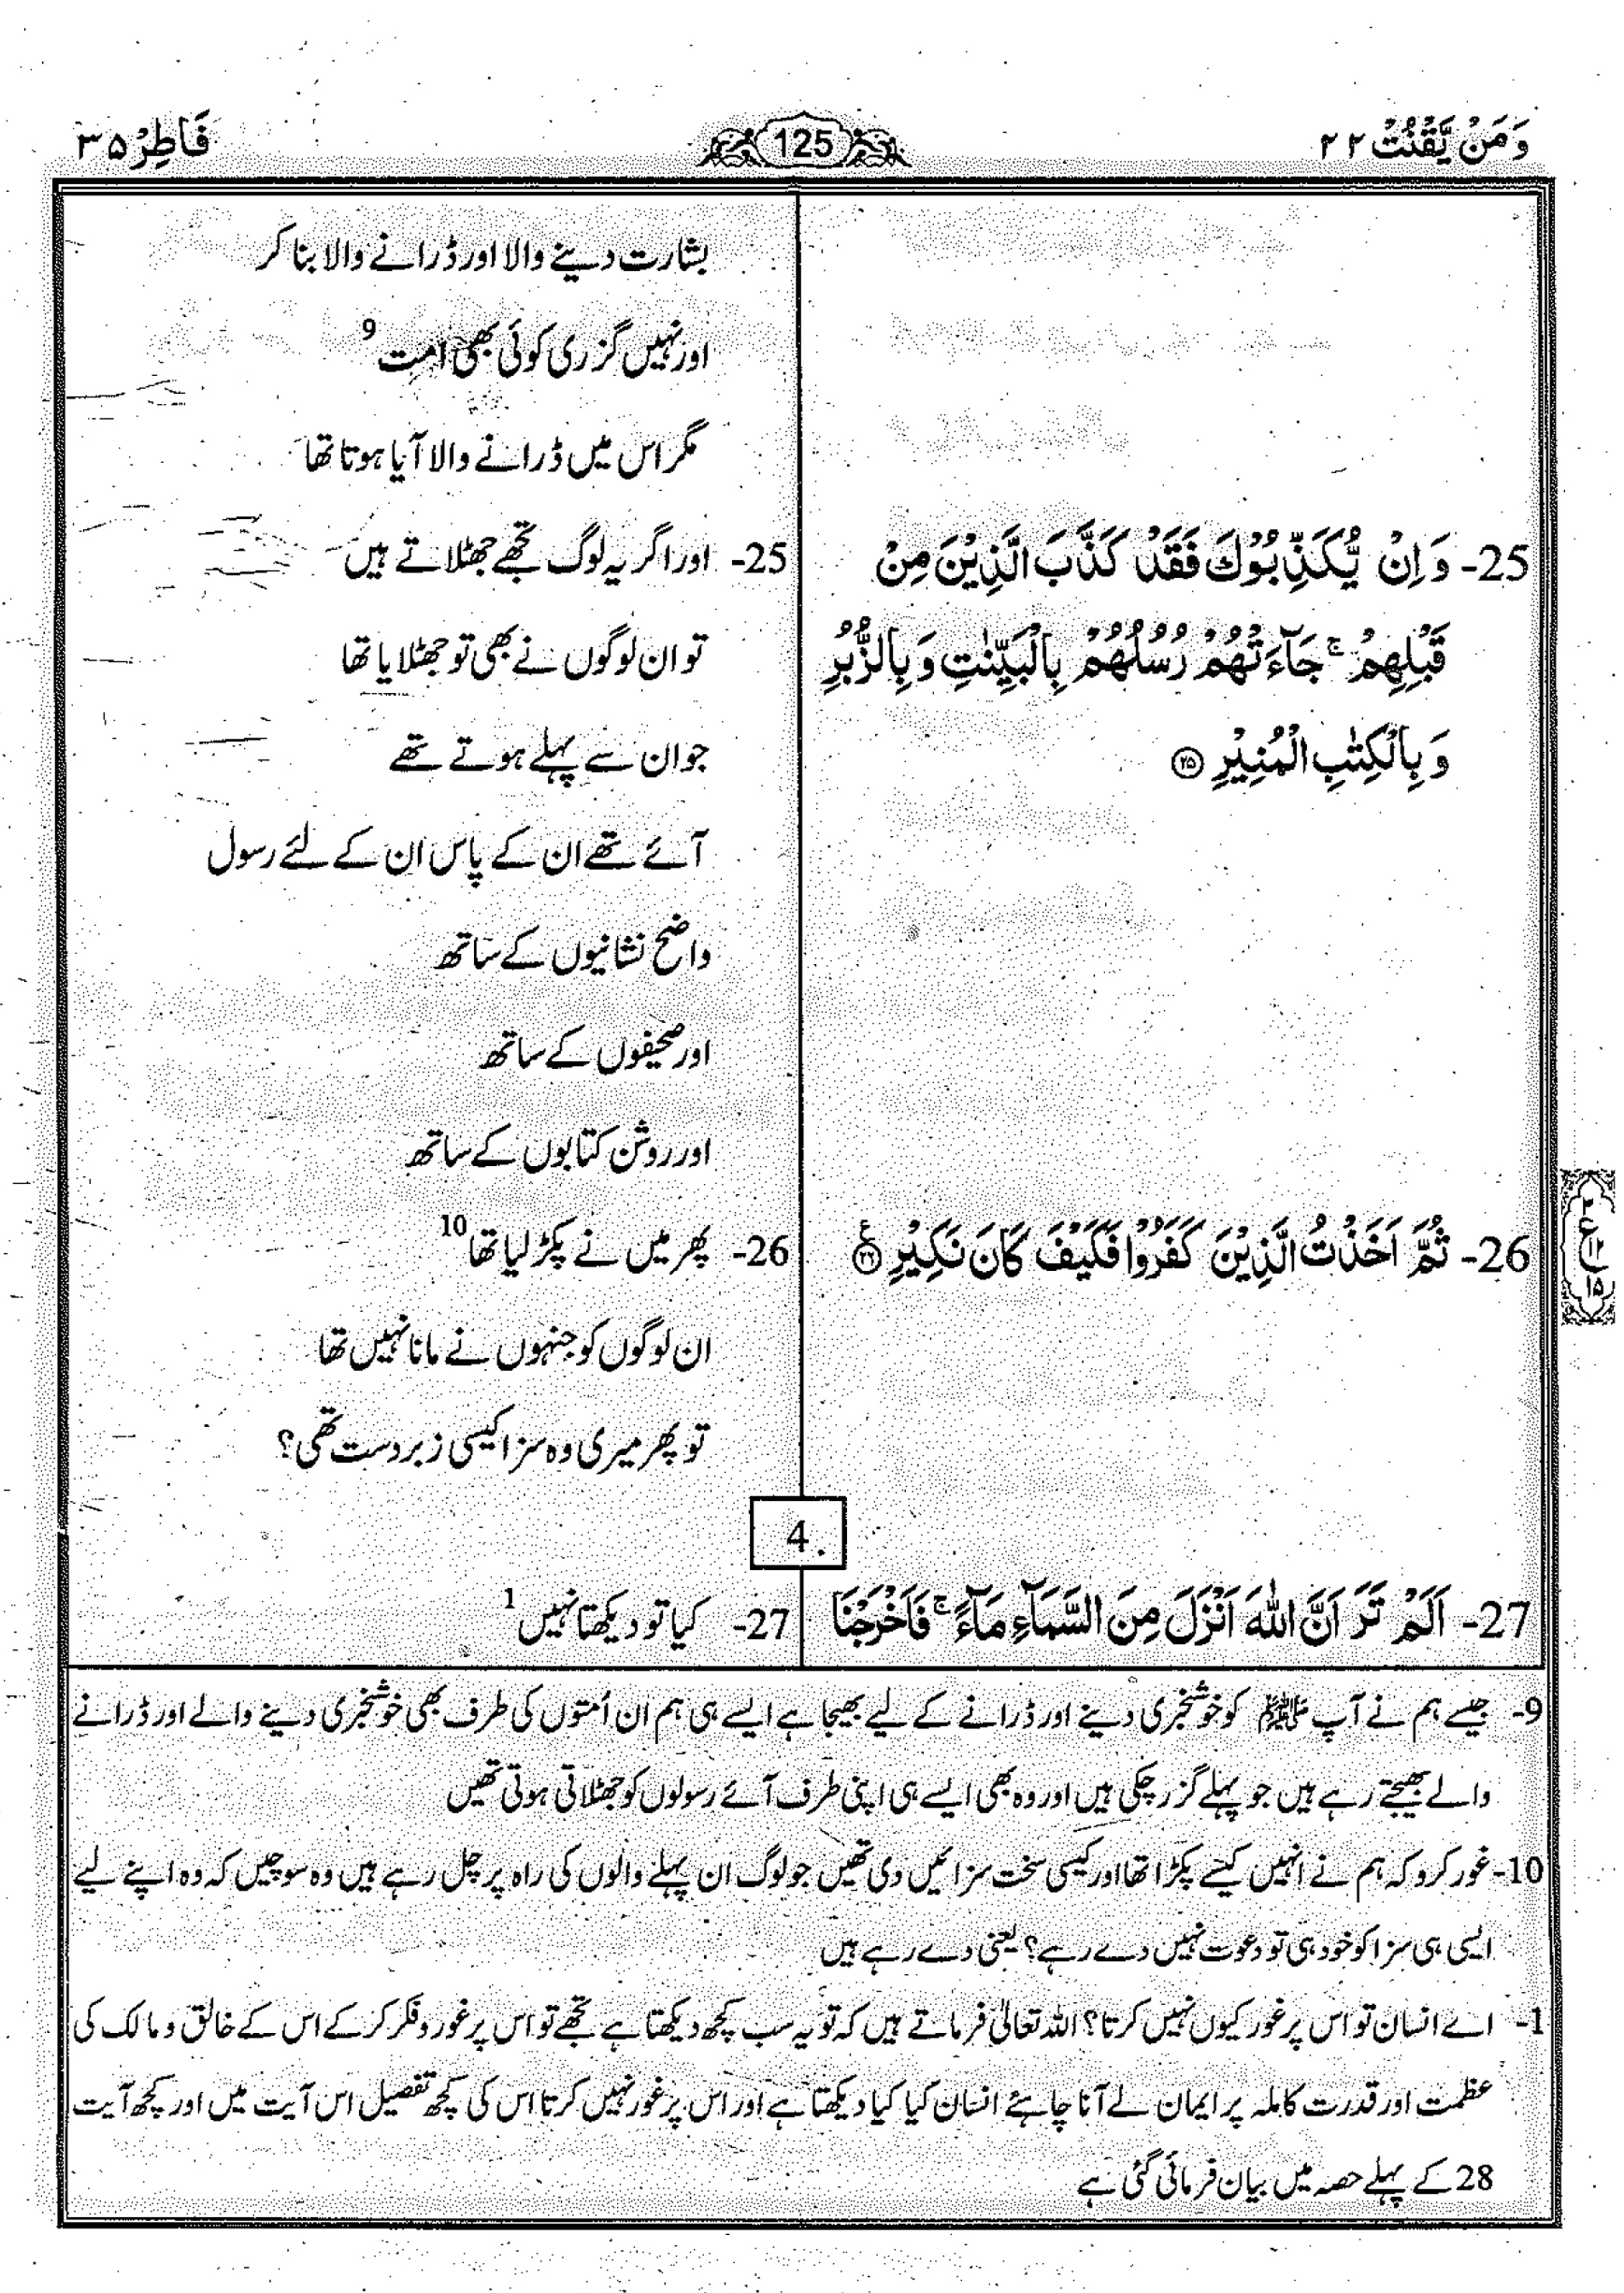 وَمَنْ يَّقْنُتْ ۲۲
125
فَاطِرْ ۳۵
بشارت دینے والا اور ڈرانے والا بنا کر
اور نہیں گزری کوئی بھی امت 9
مگر اس میں ڈرانے والا آیا ہوتا تھا
25- وَ اِنْ یُّكَذِّبُوْكَ فَقَدْ كَذَّبَ الَّذِیْنَ مِنْ
قَبْلِهِمْ ۚ جَآءَتْهُمْ رُسُلُهُمْ بِالْبَیِّنٰتِ وَ بِالزُّبُرِ
وَ بِالْكِتٰبِ الْمُنِیْرِ ۲۵
25- اور اگر یہ لوگ تجھے جھٹلاتے ہیں
تو ان لوگوں نے بھی تو جھٹلایا تھا
جو ان سے پہلے ہوتے تھے
آئے تھے ان کے پاس ان کے لئے رسول
واضح نشانیوں کے ساتھ
اور صحیفوں کے ساتھ
اور روشن کتابوں کے ساتھ
26- ثُمَّ اَخَذْتُ الَّذِیْنَ كَفَرُوْا فَكَیْفَ كَانَ نَكِیْرِ ۲۶ ع
26- پھر میں نے پکڑ لیا تھا 10
ان لوگوں کو جنہوں نے مانا نہیں تھا
تو پھر میری وہ سزا کیسی زبردست تھی؟
ع
۱۲
۱۵
4
27- اَلَمْ تَرَ اَنَّ اللّٰهَ اَنْزَلَ مِنَ السَّمَآءِ مَآءً ۚ فَاَخْرَجْنَا
27- کیا تو دیکھتا نہیں 1
9- جیسے ہم نے آپ ﷺ کو خوشخبری دینے اور ڈرانے کے لیے بھیجا ہے ایسے ہی ہم ان اُمتوں کی طرف بھی خوشخبری دینے والے اور ڈرانے
والے بھیجتے رہے ہیں جو پہلے گزر چکی ہیں اور وہ بھی ایسے ہی اپنی طرف آئے رسولوں کو جھٹلاتی ہوتی تھیں
10- غور کرو کہ ہم نے انہیں کیسے پکڑا تھا اور کیسی سخت سزائیں دی تھیں جو لوگ ان پہلے والوں کی راہ پر چل رہے ہیں وہ سوچیں کہ وہ اپنے لیے
ایسی ہی سزا کو خود ہی تو دعوت نہیں دے رہے؟ یعنی دے رہے ہیں
1- اے انسان تو اس پر غور کیوں نہیں کرتا؟ اللہ تعالیٰ فرماتے ہیں کہ تو یہ سب کچھ دیکھتا ہے تجھے تو اس پر غور و فکر کر کے اس کے خالق و مالک کی
عظمت اور قدرت کاملہ پر ایمان لے آنا چاہئے انسان کیا کیا دیکھتا ہے اور اس پر غور نہیں کرتا اس کی کچھ تفصیل اس آیت میں اور کچھ آیت
28 کے پہلے حصہ میں بیان فرمائی گئی ہے